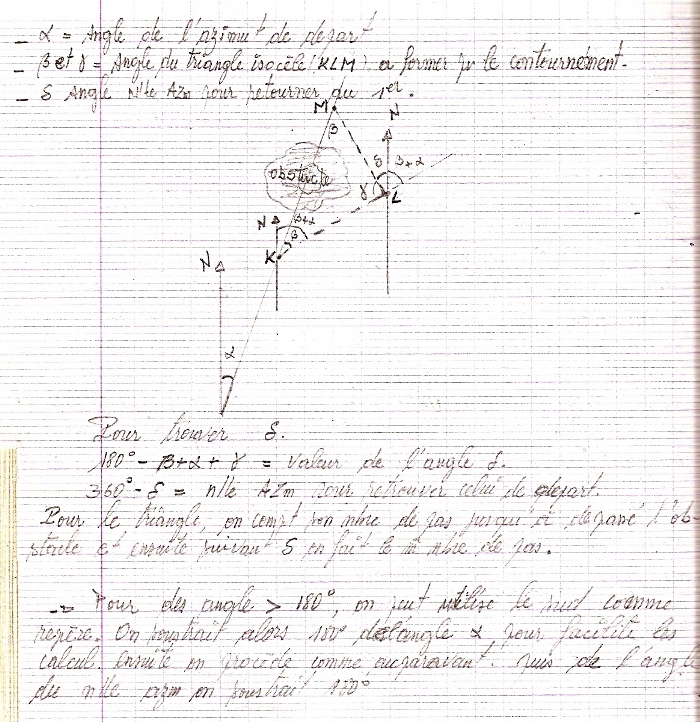 - α = Angle de l'azimut de depart
- β et γ = Angle du triangle isocèle (KLM) a former pr le contournément.
- δ Angle Nlle AZm pour retourner du 1er.
M
N
β
δ β+α
obstacle
γ
L
N β+α
β
K
N
α
Pour trouver δ.
180° - β+α + γ = valeur de l'angle δ.
360° - δ = nlle AZm pour retrouver celui de depart.
Pour le triangle, on compt son nbre de pas jusqu'à depassé l'ob-
stacle et ensuite suivant δ on fait le m nbre de pas.
-> Pour des angle > 180°, on peut utilise le sud comme
repère. On soustrait alors 180° de l'angle α pour facilité les
calcul. ensuite on procède comme auparavant. puis de l'angle
du nlle azm on soustrait 180°